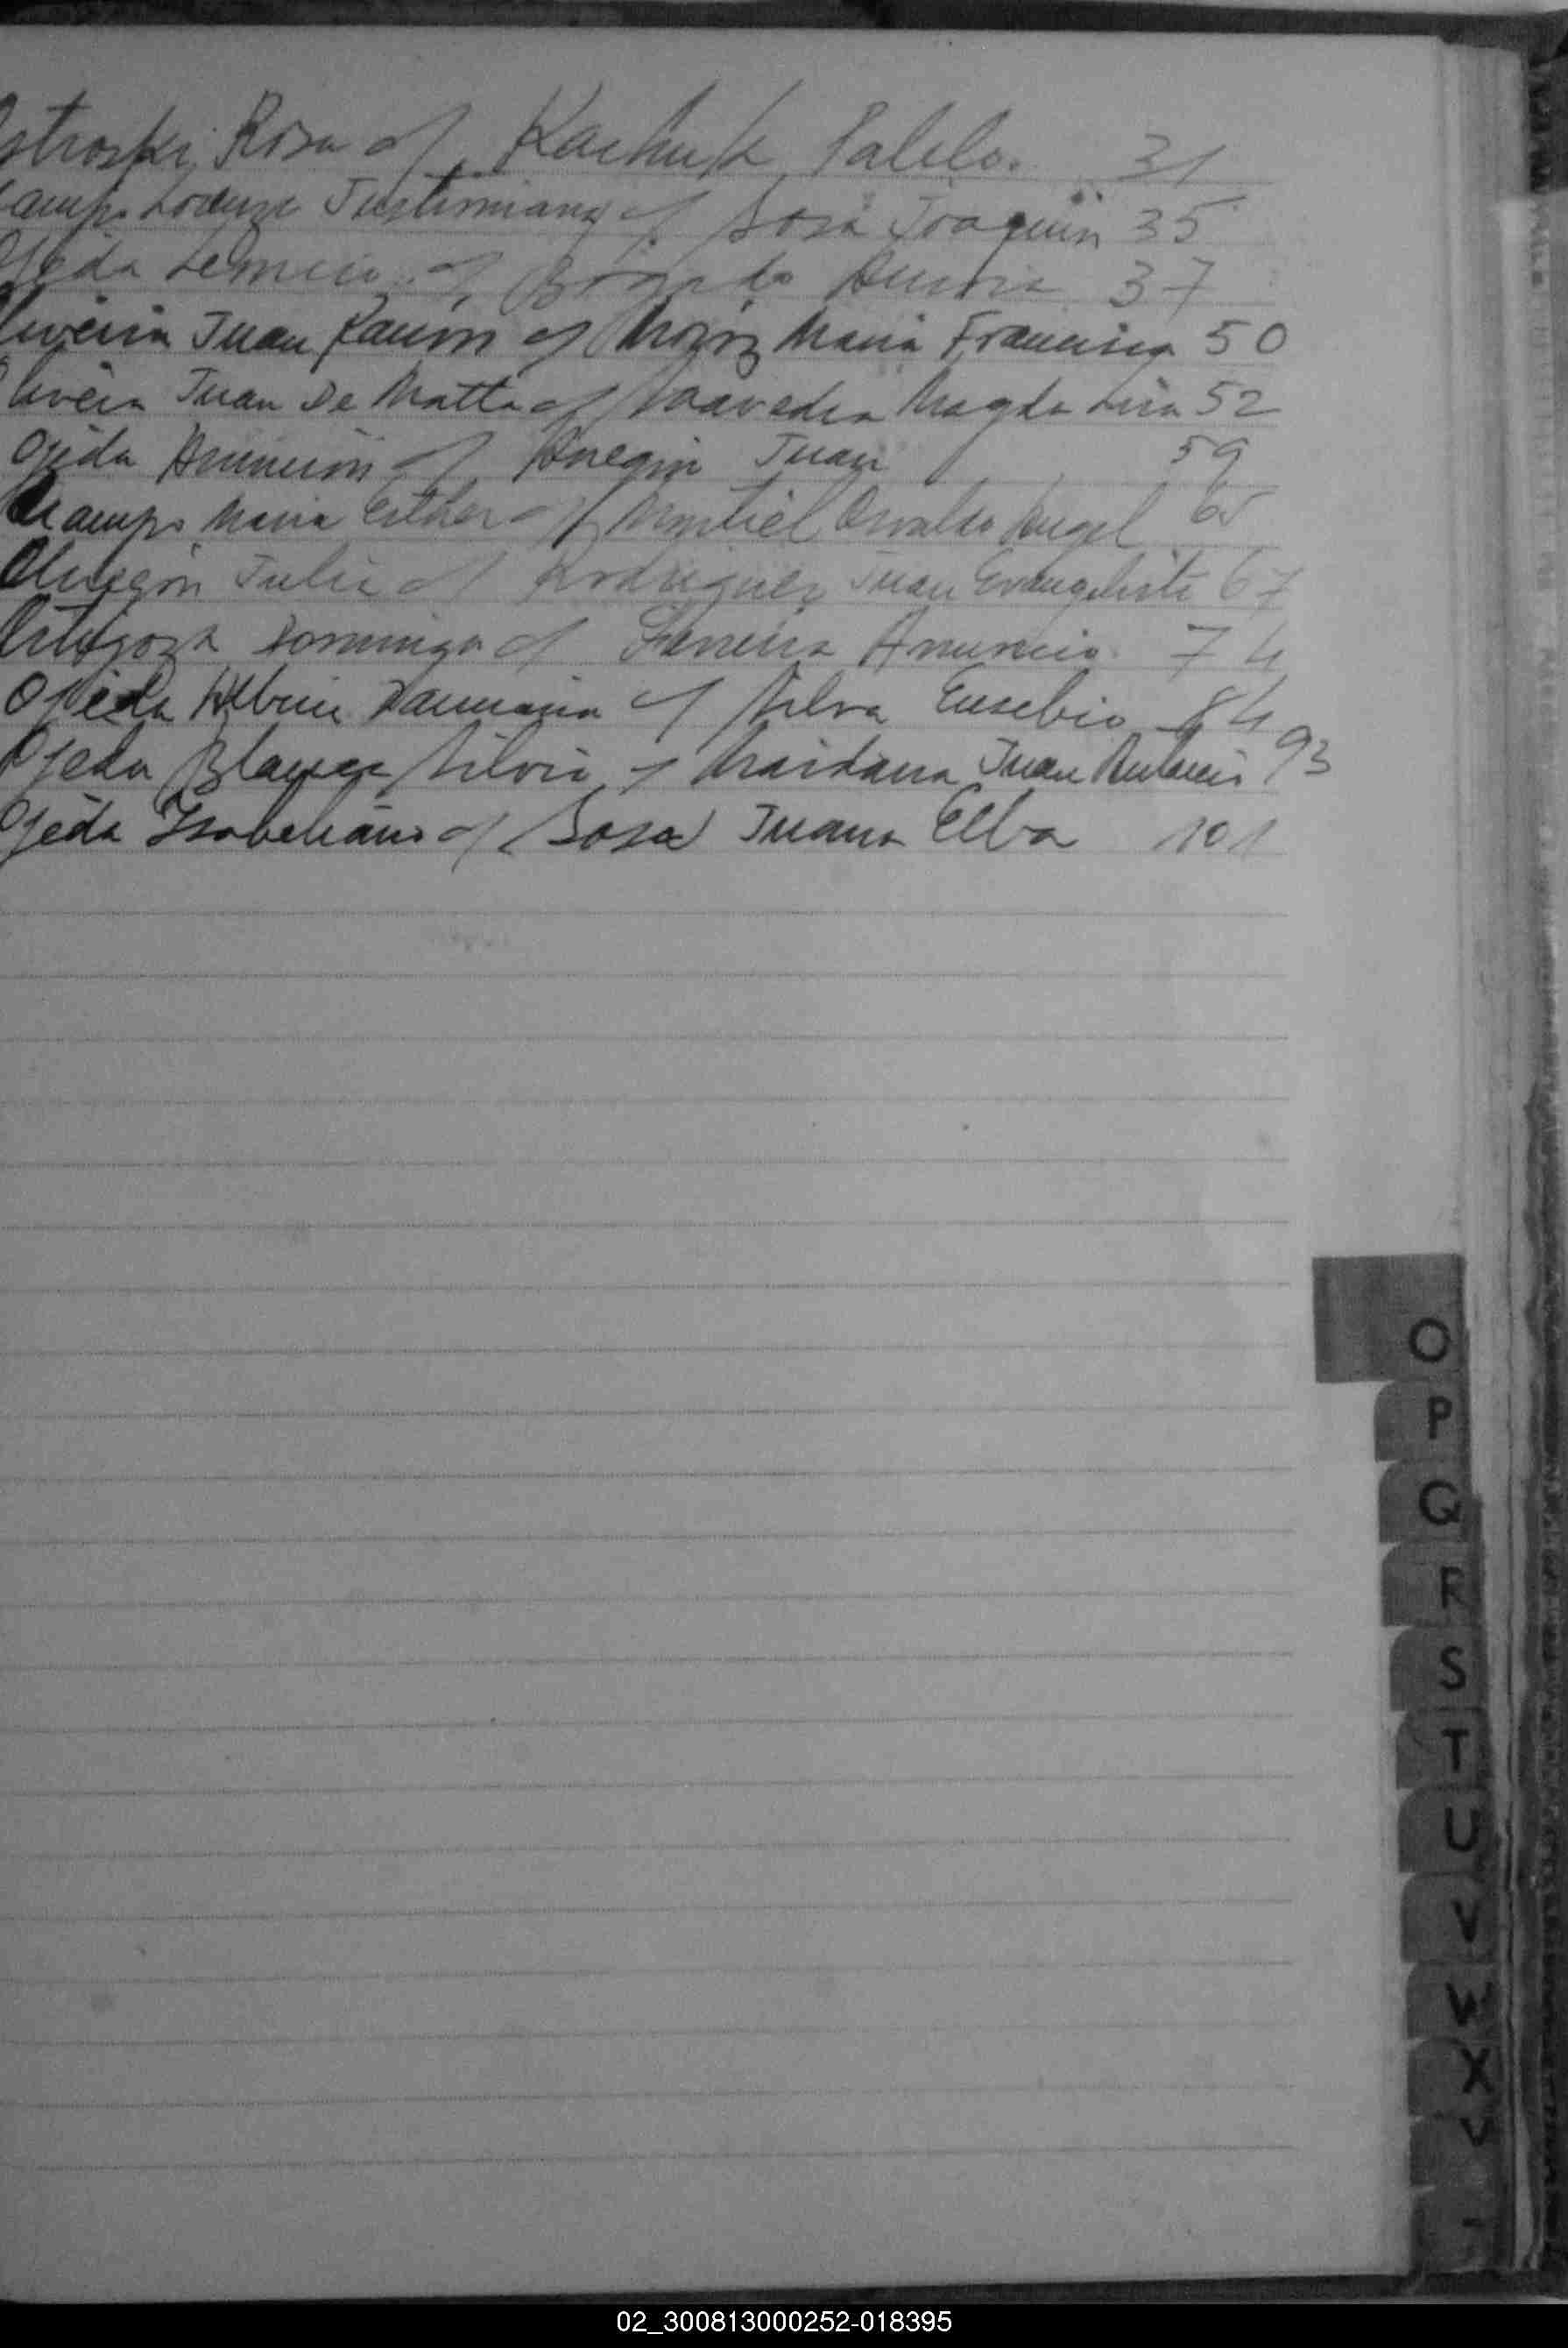 Ostroski Rosa c/ Kachuk Pablo. 31
Ocampo Lorenzo Justiniano c/ Sosa Joaquin 35
Ojeda c/ Aurora 37
Oliveira Juan Ramón c/ Maria Francisca 50
Olivera Juan De Matta c/ Saavedra Magdalena 52
Ojeda Asunción c/ Juan 59
Ocampo Maria Esther c/ Montiel Osvaldo Angel 65
Obregón Julia c/ Rodriguez Juan Evangelista 67
Ortigoza Dominga c/ Ferreira Anuncio. 74
Ojeda Albina Damiana c/ Silva Eusebio 84
Ojeda Blanca Silvia c/ Maidana Juan 93
Ojeda Isabeliano c/ Sosa Juana Elba 101
O
P
Q
R
S
T
U
V
W
X
Y
02_300813000252-018395